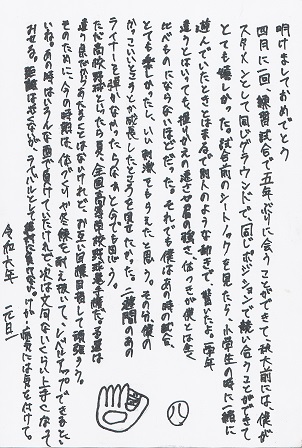 明けましておめでとう
四月に一回、練習試合で五年ぶりに会うことができて、秋大前には、僕が
スタメンとして同じグラウンドで、同じポジションで競い合うことができて
とても嬉しかった。試合前のシートノックを見たら、小学生の時に一緒に
遊んでいたときとはまるで別人のような動きで、驚いたよ。一学年
違うとはいっても、捕りかえの速さや肩の強さ、体つきが僕とは全く
比べものにならないほどだった。それでも僕はあの時の試合、
とても楽しかったし、いい刺激をもらえたと思う。その分、僕の
かっこいいそうとか成長したところを見せたかった。二複間のあの
ライナーを弾かなかったらなぁと今でも思う。
だが高校野球といったら夏、全国高等学校野球選手権だ。予選は
違う県だからあたることはないけれど、お互いに目標目指して頑張ろう。
そのために、今の時期は、体づくりや冬練を耐え抜いて、レベルアップできるといいね。
あの時はいろんな面で負けていたけれど、次は文句ないくらい上手くなって
みせる。距離は遠くなるが、ライバルとして絶対に負けない。けが・病気には気を付けて。
令和六年 元旦